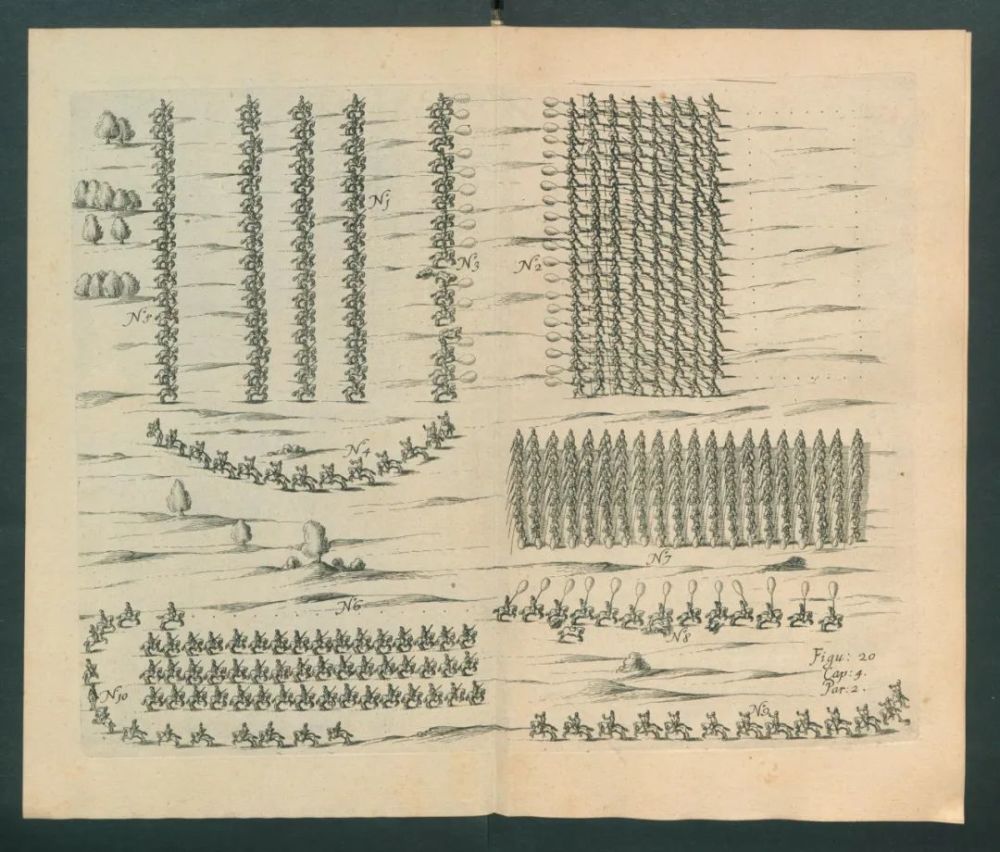 N1
N3
N2
N5
N4
N7
N6
N8
Figu: 20
Cap: 4.
Par: 2.
N10
N9